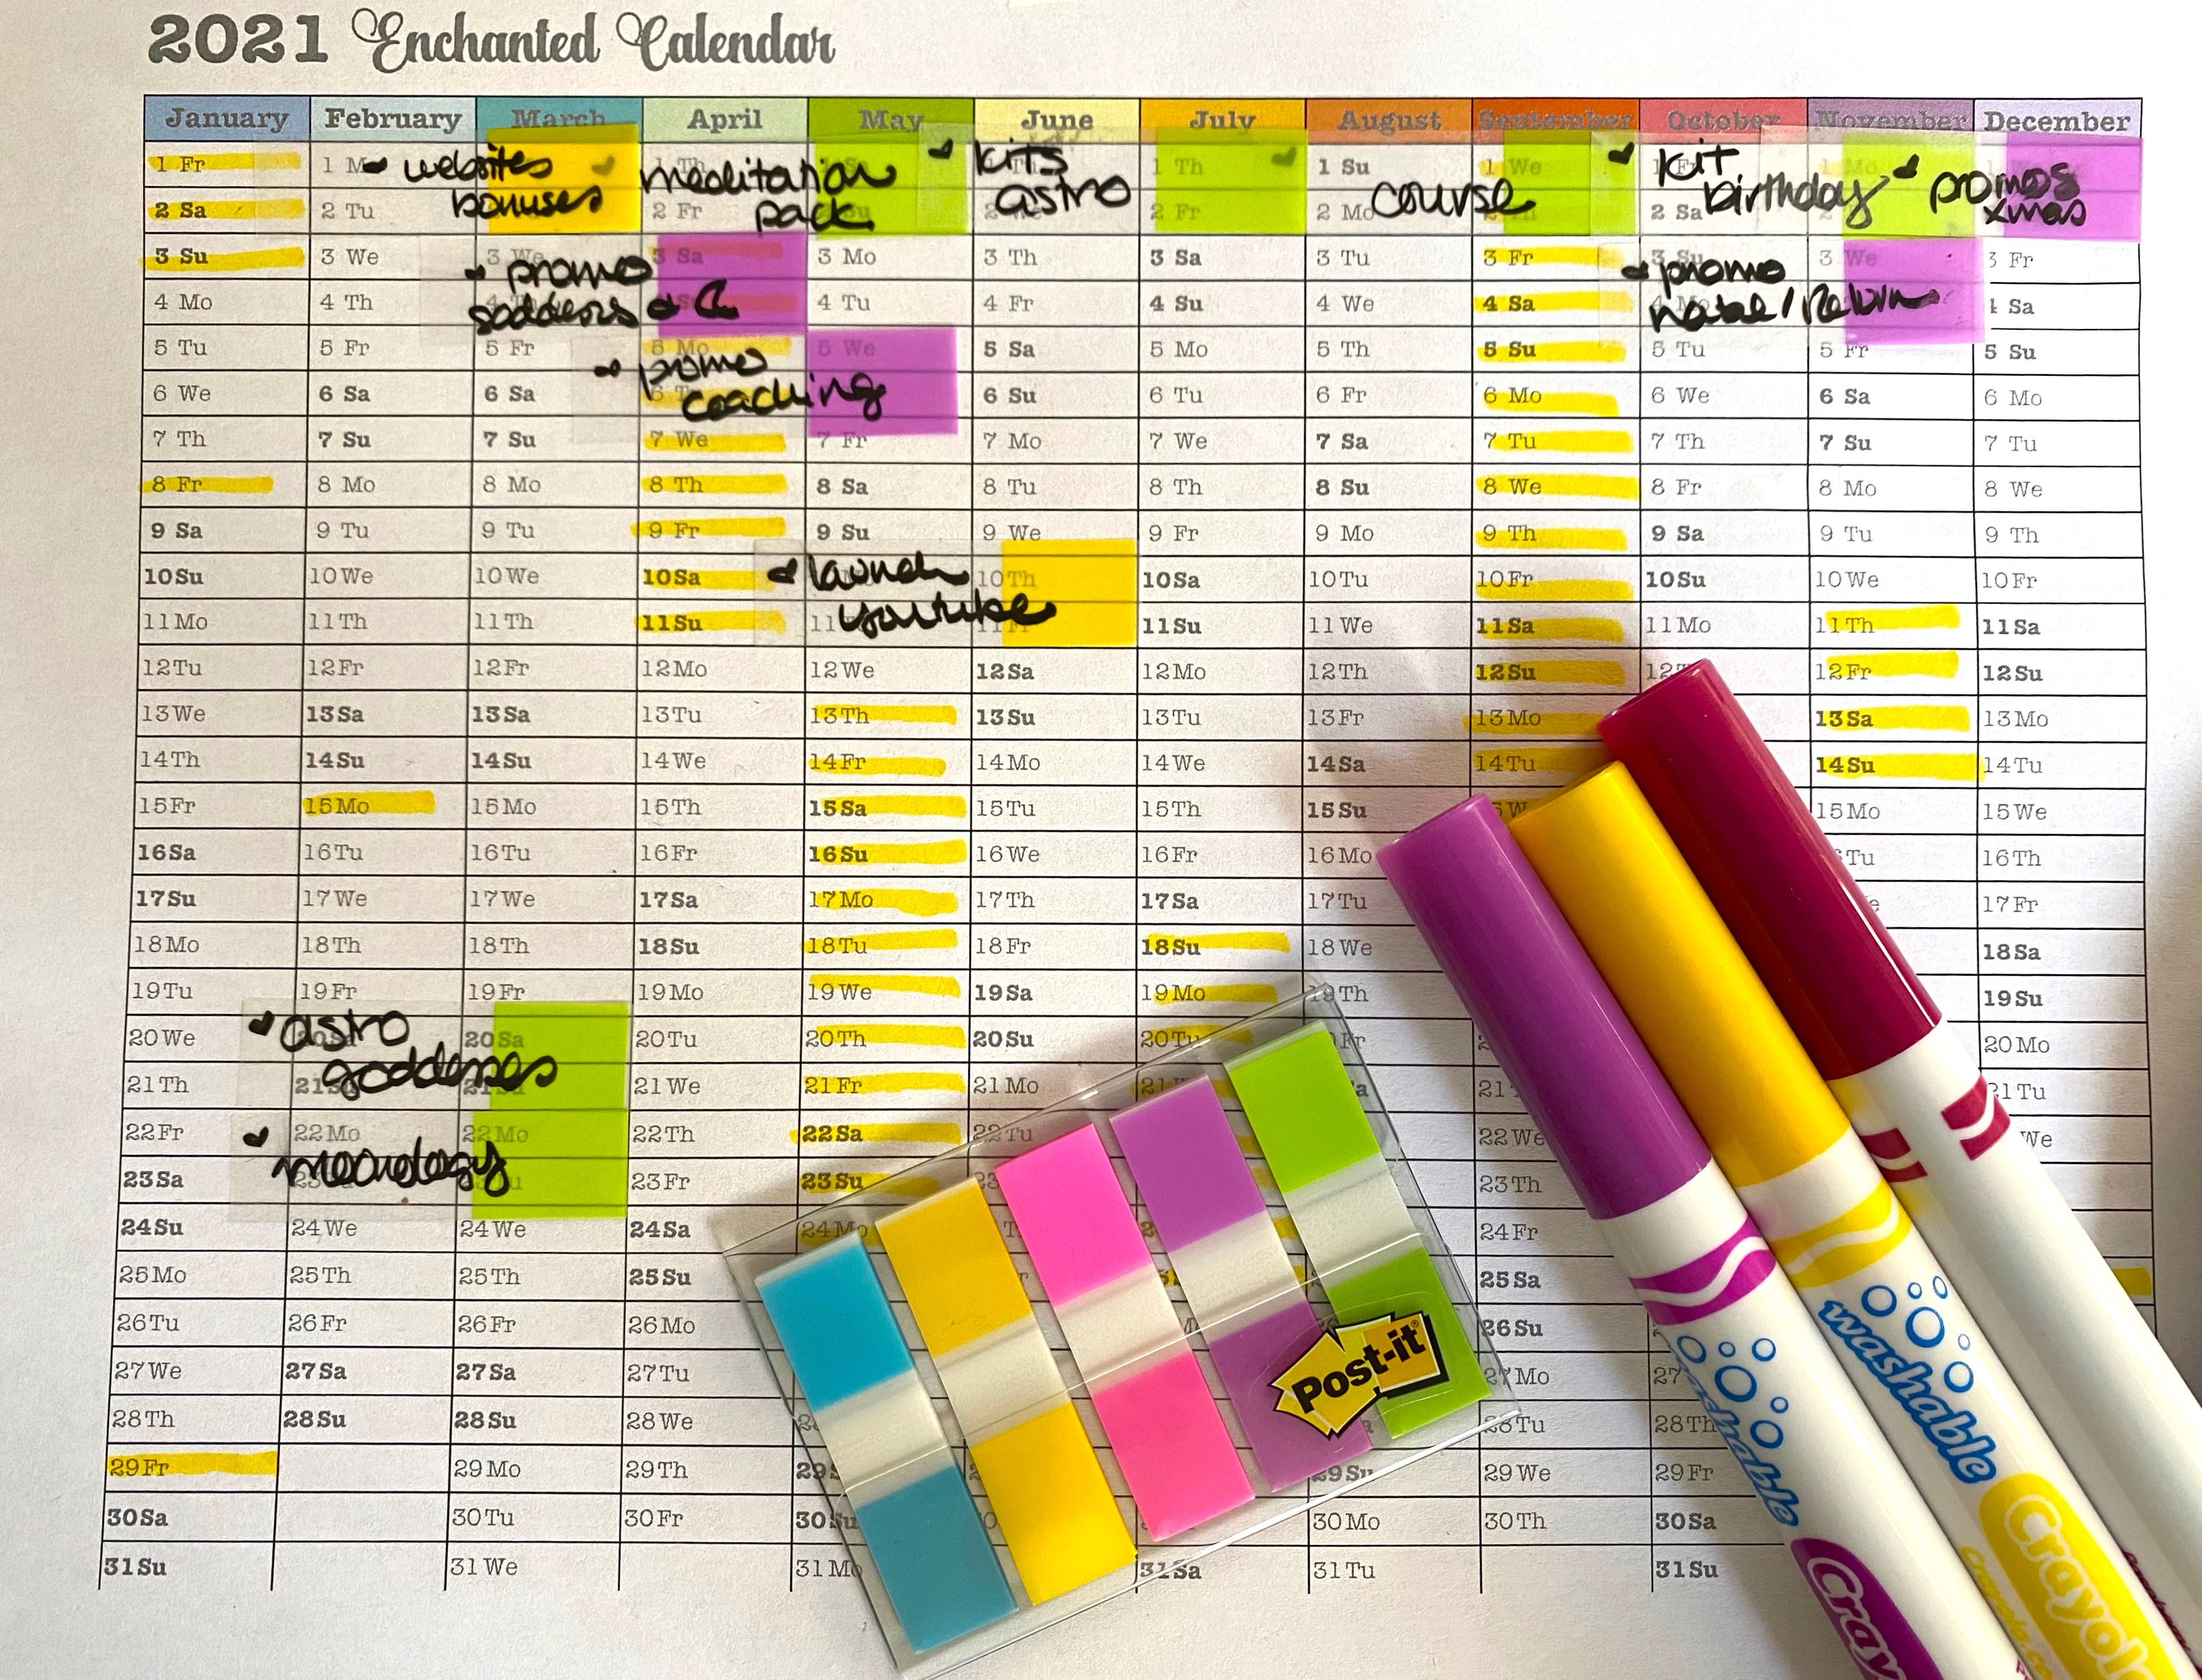 2021 Enchanted Calendar
January February March April May June July August September October November December
1 Fr 1 M websites 1 Th meditation kits 1 Th 1 Su 1 We kit promos
2 Sa 2 Tu bonuses 2 Fr pack astro 2 Fr 2 Mo course 2 Sa birthday xmas
3 Su 3 We 3 We promo 3 Sa 3 Mo 3 Th 3 Sa 3 Tu 3 Fr 3 Su promo 3 We 3 Fr
4 Mo 4 Th goddess + C 4 Tu 4 Fr 4 Su 4 We 4 Sa natal / 4 Sa
5 Tu 5 Fr 5 Fr 5 Mo promo 5 We 5 Sa 5 Mo 5 Th 5 Su 5 Tu 5 Fr 5 Su
6 We 6 Sa 6 Sa coaching 6 Su 6 Tu 6 Fr 6 Mo 6 We 6 Sa 6 Mo
7 Th 7 Su 7 Su 7 We 7 Fr 7 Mo 7 We 7 Sa 7 Tu 7 Th 7 Su 7 Tu
8 Fr 8 Mo 8 Mo 8 Th 8 Sa 8 Tu 8 Th 8 Su 8 We 8 Fr 8 Mo 8 We
9 Sa 9 Tu 9 Tu 9 Fr 9 Su 9 We 9 Fr 9 Mo 9 Th 9 Sa 9 Tu 9 Th
10 Su 10 We 10 We 10 Sa launch 10 Th 10 Sa 10 Tu 10 Fr 10 Su 10 We 10 Fr
11 Mo 11 Th 11 Th 11 Su 11 youtube 11 Su 11 We 11 Sa 11 Mo 11 Th 11 Sa
12 Tu 12 Fr 12 Fr 12 Mo 12 We 12 Sa 12 Mo 12 Th 12 Su 12 12 Fr 12 Su
13 We 13 Sa 13 Sa 13 Tu 13 Th 13 Su 13 Tu 13 Fr 13 Mo 13 Sa 13 Mo
14 Th 14 Su 14 Su 14 We 14 Fr 14 Mo 14 We 14 Sa 14 Tu 14 Su 14 Tu
15 Fr 15 Mo 15 Mo 15 Th 15 Sa 15 Tu 15 Th 15 Su 15 Mo 15 We
16 Sa 16 Tu 16 Tu 16 Fr 16 Su 16 We 16 Fr 16 Mo Tu 16 Th
17 Su 17 We 17 We 17 Sa 17 Mo 17 Th 17 Sa 17 Tu 17 Fr
18 Mo 18 Th 18 Th 18 Su 18 Tu 18 Fr 18 Su 18 We 18 Sa
19 Tu 19 Fr 19 Fr 19 Mo 19 We 19 Sa 19 Mo 19 Th 19 Su
20 We astro 20 Sa 20 Tu 20 Th 20 Su 20 Tu Fr 20 Mo
21 Th goddesses 21 We 21 Fr 21 Mo 21 21 21 Tu
22 Fr 22 Mo 22 Mo 22 Th 22 Sa 22 Tu 22 We We
23 Sa moonology 23 Fr 23 Su 23 Th
24 Su 24 We 24 We 24 Sa 24 Mo 24 Fr
25 Mo 25 Th 25 Th 25 Su 25 Sa
26 Tu 26 Fr 26 Fr 26 Mo 26 Su
27 We 27 Sa 27 Sa 27 Tu 27 Mo 27
28 Th 28 Su 28 Su 28 We 28 Tu 28 Th
29 Fr 29 Mo 29 Th 29 29 Su 29 We 29 Fr
30 Sa 30 Tu 30 Fr 30 Su 30 Mo 30 Th 30 Sa
31 Su 31 We 31 Mo 31 Sa 31 Tu 31 Su
Post-it
washable
washable
Crayol
Cray